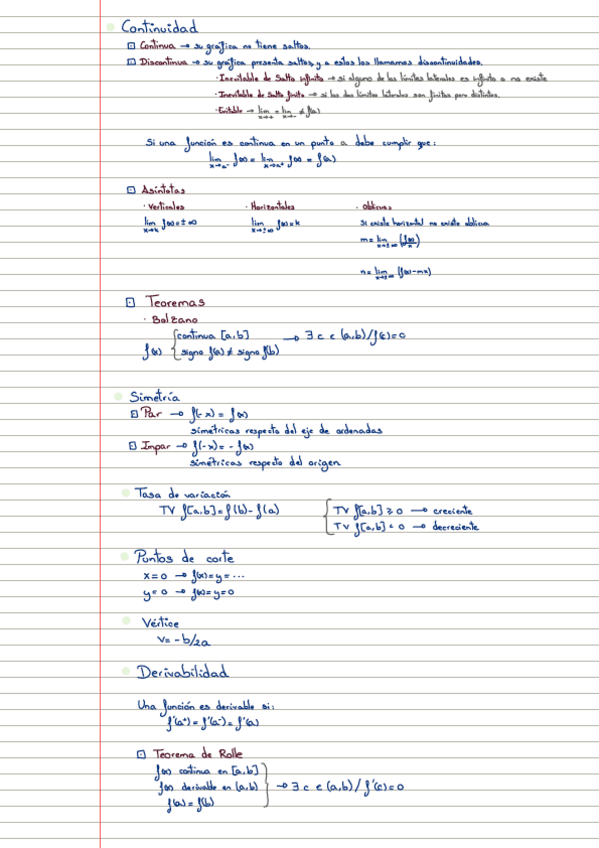 Continuidad
Continua → su gráfica no tiene saltos.
Discontinua → su gráfica presenta saltos, y a estos los llamamos discontinuidades.
· Inevitable de Salto infinito → si alguno de los límites laterales es infinito o no existe
· Inevitable de Salto finito → si los dos límites laterales son finitos pero distintos.
· Evitable → lim x→a⁺ = lim x→a⁻ ≠ f(a)
Si una función es continua en un punto a debe cumplir que:
lim x→a⁻ f(x) = lim x→a⁺ f(x) = f(a)
Asíntotas
· Verticales · Horizontales · Oblicuas
lim x→k f(x) = ±∞ lim x→±∞ f(x) = k Si existe horizontal no existe oblicua
m = lim x→±∞ (f(x)/x)
n = lim x→±∞ (f(x)-mx)
Teoremas
· Bolzano
f(x) { continua [a,b] → ∃ c ∈ (a,b) / f(c) = 0
signo f(a) ≠ signo f(b)
Simetría
Par → f(-x) = f(x)
simétricas respecto del eje de ordenadas
Impar → f(-x) = - f(x)
simétricas respecto del origen
Tasa de variación
TV f[a,b] = f(b) - f(a) { TV f[a,b] > 0 → creciente
TV f[a,b] < 0 → decreciente
Puntos de corte
x = 0 → f(x) = y = ...
y = 0 → f(x) = y = 0
Vértice
V = -b/2a
Derivabilidad
Una función es derivable si:
f'(a⁺) = f'(a⁻) = f'(a)
Teorema de Rolle
f(x) continua en [a,b]
f(x) derivable en (a,b) } → ∃ c ∈ (a,b) / f'(c) = 0
f(a) = f(b)